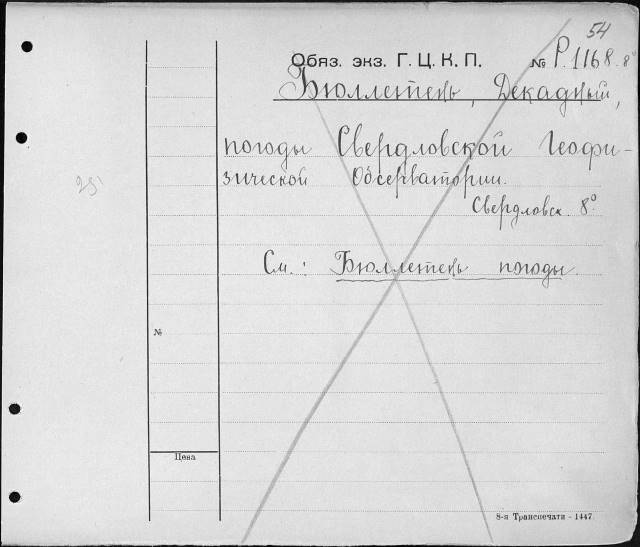 54
Обяз. экз. Г. Ц. К. П. № Р.1168. 8°
Бюллетень, Декадный,
погоды Свердловской Геофи-
зической Обсерватории.
Свердловск. 8°.
См.: Бюллетень погоды.
25
№
Цена
8-я Транспечати - 1447.